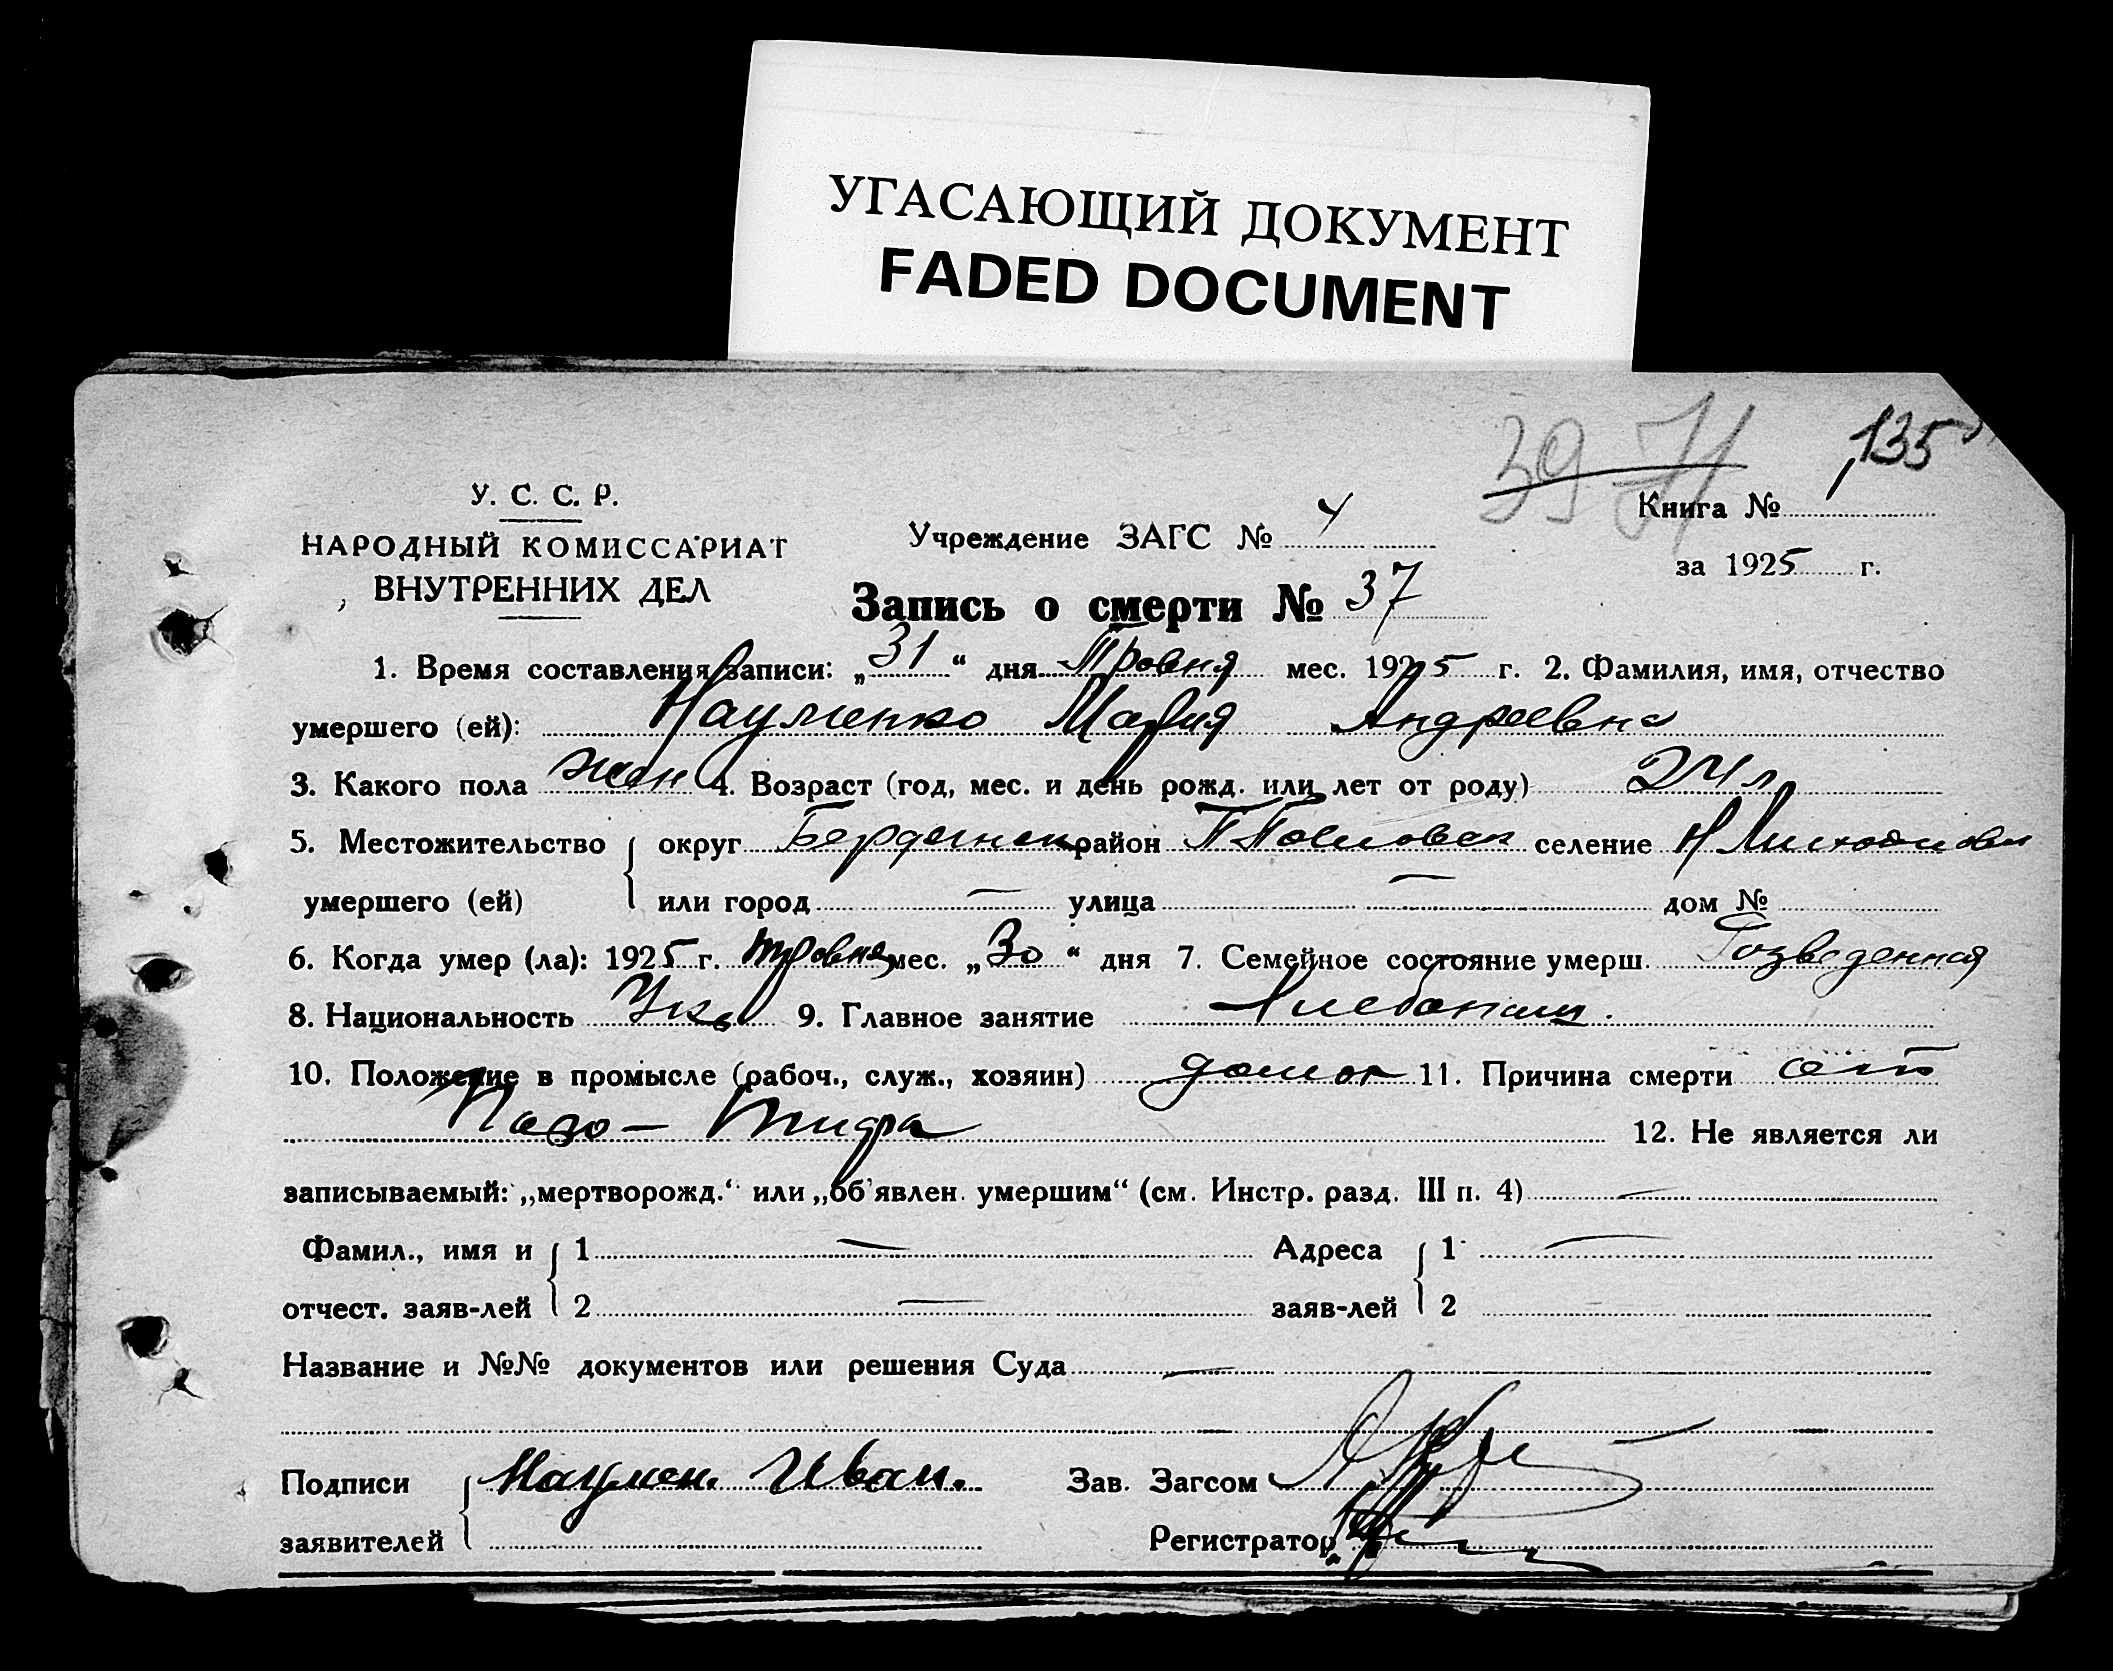 УГАСАЮЩИЙ ДОКУМЕНТ
FADED DOCUMENT
39 71 135
У. С. С. Р.
НАРОДНЫЙ КОМИССАРИАТ
ВНУТРЕННИХ ДЕЛ
Учреждение ЗАГС № 4
Книга №
за 1925 г.
Запись о смерти № 37
1. Время составления записи: „31“ дня Тровня мес. 1925 г. 2. Фамилия, имя, отчество
умершего (ей): Науменко Мария Андреевна
3. Какого пола жен 4. Возраст (год, мес. и день рожд. или лет от роду) 24 л
5. Местожительство округ Бердянск район селение Н
умершего (ей) или город — улица — дом №
6. Когда умер (ла): 1925 г. тровня мес. „30“ дня 7. Семейное состояние умерш. Розведенная
8. Национальность Укр 9. Главное занятие Хлебопаш.
10. Положение в промысле (рабоч., служ., хозяин) 11. Причина смерти от
тифа 12. Не является ли
записываемый: „мертворожд.“ или „об'явлен. умершим“ (см. Инстр. разд. III п. 4) —
Фамил., имя и 1 — Адреса 1 —
отчест. заяв-лей 2 — заяв-лей 2
Название и №№ документов или решения Суда —
Подписи Наумен. Иван. Зав. Загсом
заявителей Регистратор